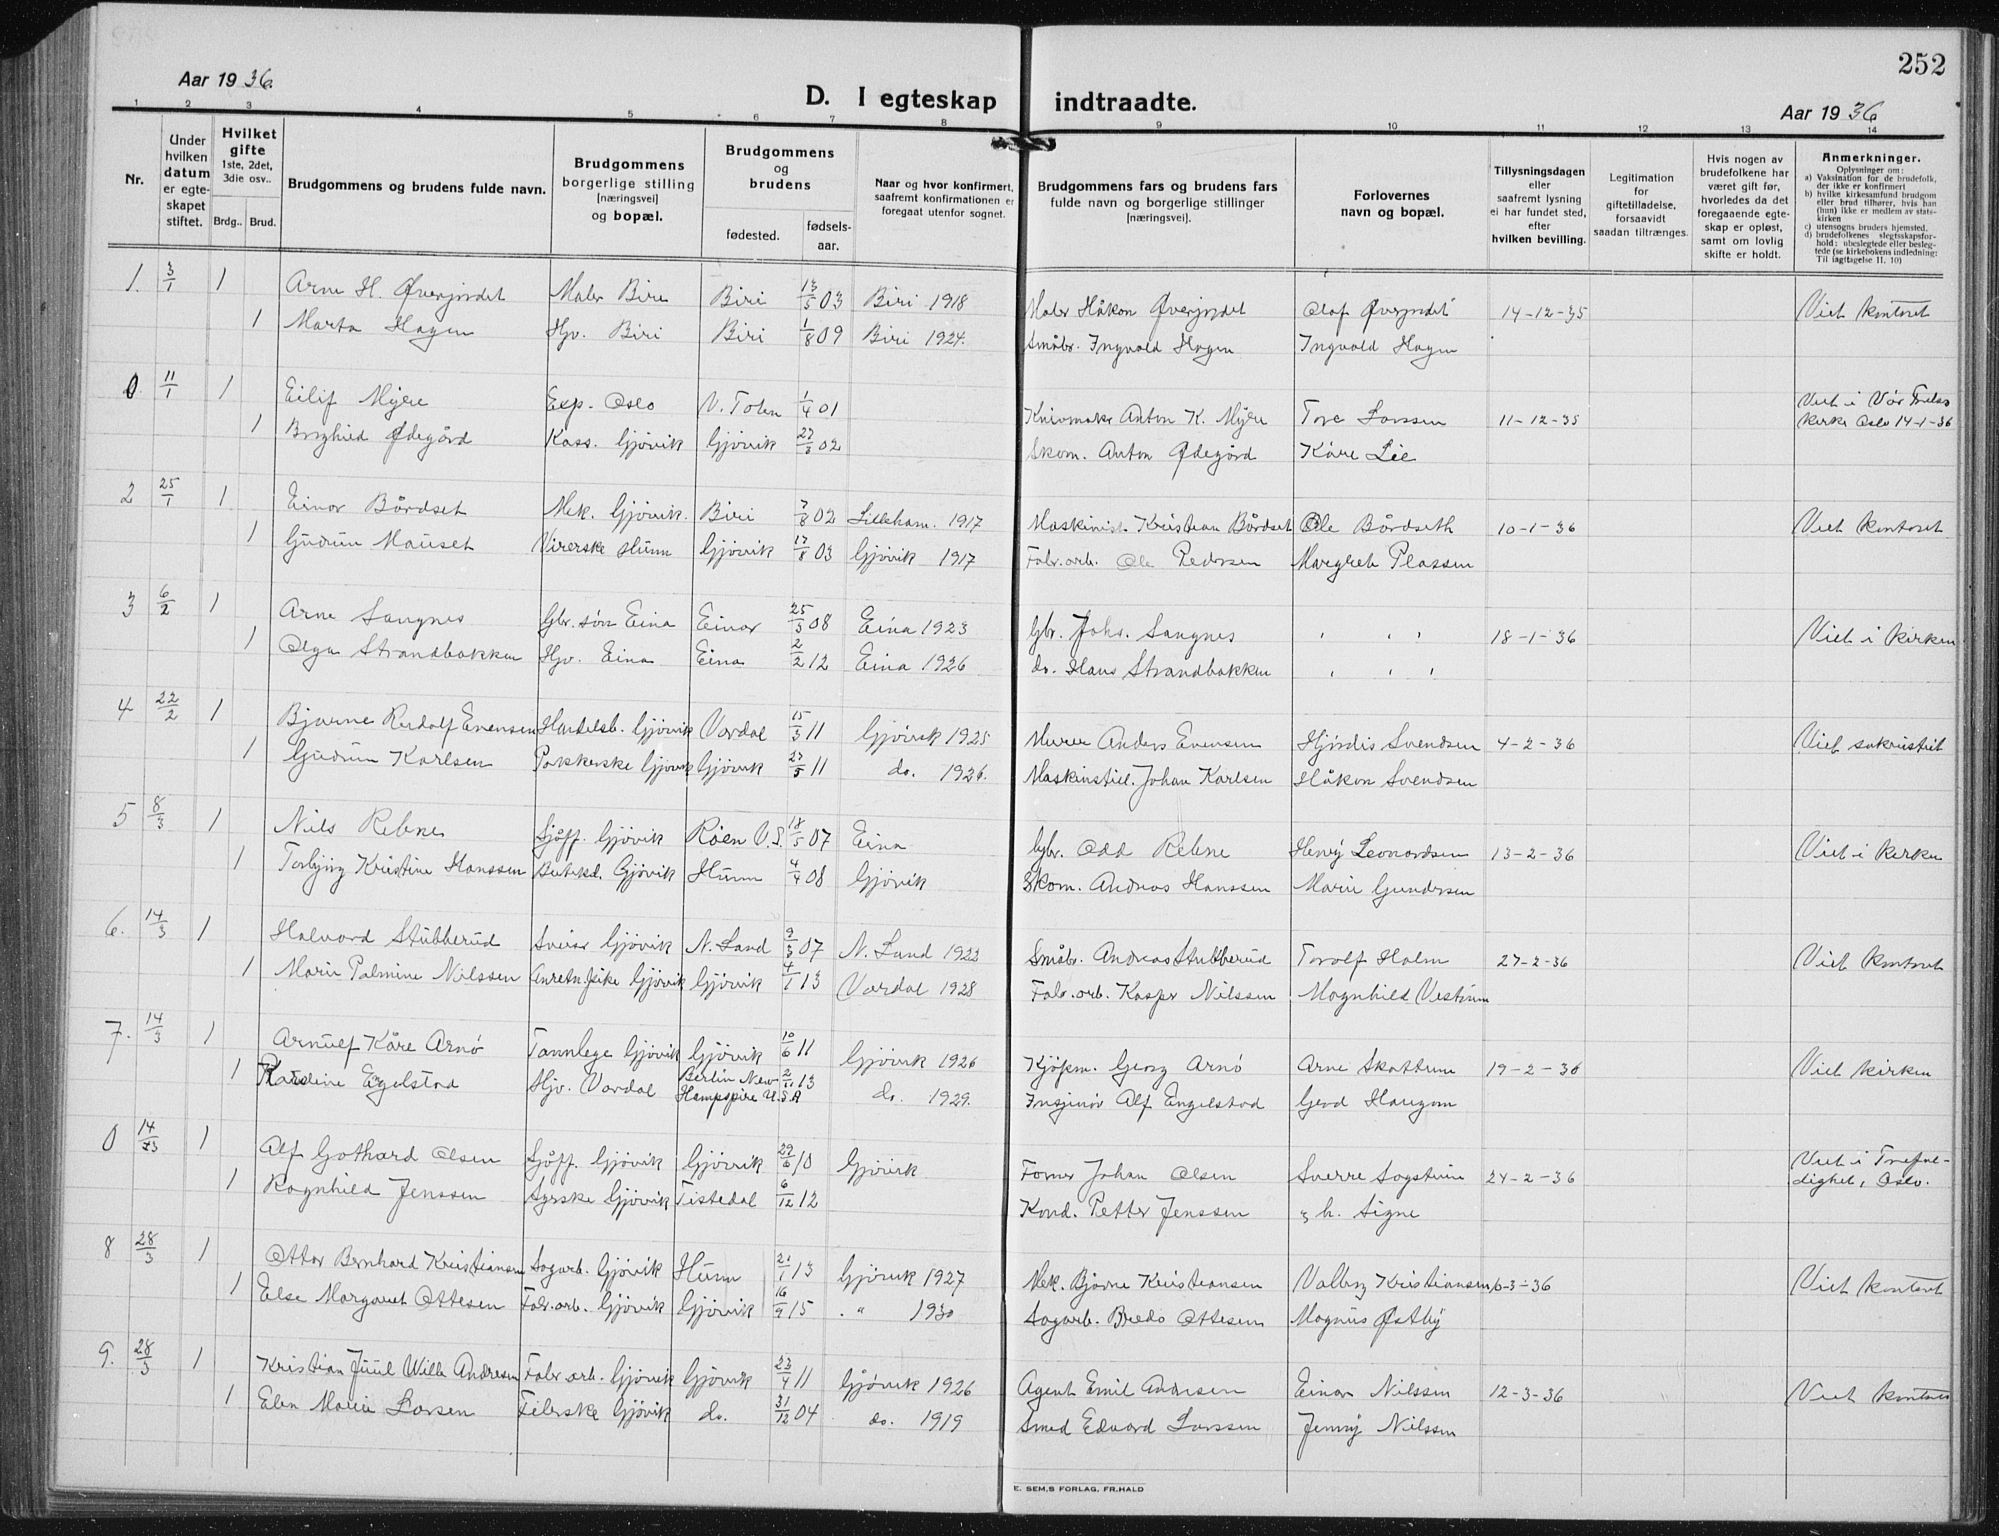 252
Aar 1936
D. I egteskap indtraadte.
Aar 1936
1 2 3 4 5 6 7 8 9 10 11 12 13 14
Nr.
Under hvilken datum er egteskapet stiftet.
Hvilket gifte
1ste, 2det, 3die osv..
Brdg.. Brud.
Brudgommens og brudens fulde navn.
Brudgommens borgerlige stilling [næringsvei] og bopæl.
Brudgommens og brudens
fødested.
fødselsaar.
Naar og hvor konfirmert, saafremt konfirmationen er foregaat utenfor sognet.
Brudgommens fars og brudens fars fulde navn og borgerlige stillinger [næringsvei].
Forlovernes navn og bopæl.
Tillysningsdagen eller saafremt lysning ei har fundet sted, efter hvilken bevilling.
Legitimation for giftetilladelse, forsaavidt saadan tiltrænges.
Hvis nogen av brudefolkene har været gift før, hvorledes da det foregaaende egteskap er opløst, samt om lovlig skifte er holdt.
Anmerkninger.
Oplysninger om:
a) Vaksination for de brudefolk, der ikke er konfirmert
b) hvilke kirkesamfund brudgom eller brud tilhører, hvis han (hun) ikke er medlem av statskirken
c) utensogns bruders hjemsted.
d) brudefolkenes slegtsskapsforhold: ubeslegtede eller beslegtede (se kirkebokens indledning: Til iagttagelse II. 10)
1. 3/1 1 Arne H. Øverjordet Maler Biri Biri 13/5 03 Biri 1918 Maler Håkon Øverjordet Olaf Øverjordet 14-12-35 Viet kontoret
1 Marta Hagen Hjv. Biri Biri 1/8 09 Biri 1924. Småbr. Ingvald Hagen Ingvald Hagen
0 11/1 1 Eilif Myre Exp. Oslo V. Toten 1/4 01 Knivmaker Anton K. Myre Tore Larssen 11-12-35 Viet i Vår Frelses kirke Oslo 14-1-36
1 Borghild Ødegård Kass. Gjøvik Gjøvik 27/3 02 Skom. Anton Ødegård Kåre Lie
2 25/1 1 Einar Bårdset Mek. Gjøvik. Biri 7/8 02 Lilleham. 1917 Maskinist. Kristian Bårdset Ole Bårdseth 10-1-36 Viet kontoret
1 Gudrun Mauset Virerske Hunn Gjøvik 17/8 03 Gjøvik 1917 Fabr.arb. Ole Pedersen Margrete Plassen
3 6/2 1 Arne Sangnes Gbr. søn Eina Einar 25/3 08 Eina 1923 Gbr. Johs. Sangnes " " " 18-1-36 Viet i kirken
1 Olga Strandbakken Hjv. Eina Eina 2/2 12 Eina 1926 do. Hans Strandbakken " " "
4 22/2 1 Bjarne Rudolf Evensen Handelsb. Gjøvik Vardal 15/3 11 Gjøvik 1925 Murer Anders Evensen Hjørdis Svendsen 4-2-36 Viet sakristiet
1 Gudrun Karlsen Pakkerske Gjøvik Gjøvik 27/5 11 do. 1926. Maskinstill. Johan Karlsen Håkon Svendsen
5 8/3 1 Niels Rebne Sjåff. Gjøvik Roen V.S. 18/5 07 Eina Gbr. Odd Rebne Henry Leonardsen 13-2-36 Viet i kirken
1 Torbjørg Kristine Hanssen Butikd. Gjøvik Hunn 4/4 08 Gjøvik Skom. Andreas Hanssen Marie Gundersen
6. 14/3 1 Halvard Stubberud Sveiser Gjøvik N. Land 9/3 07 N. Land 1922 Småbr. Andreas Stubberud Torolf Holm 27-2-36 Viet kontoret
1 Marie Palmine Nilssen Anretn.pike Gjøvik Gjøvik 4/1 13 Vardal 1928 Fabr.arb. Kasper Nilssen Magnhild Vestrum
7. 14/3 1 Arnulf Kåre Arnø Tannlege Gjøvik Gjøvik 10/6 11 Gjøvik 1926 Kjøpm. Georg Arnø Arne Skattum 19-2-36 Viet kirken
1 Engelstad Hjv. Vardal Berlin New Hampspire U.S.A 2/11 13 do. 1929. Insjinør Alf Engelstad Gerd Haugom
0 14/3 1 Alf Gothard Olsen Sjåff. Gjøvik Gjøvik 29/6 10 Gjøvik Former Johan Olsen Sverre Sogstrine 24-2-36 Viet i Trefoldighet, Oslo.
1 Ragnhild Jenssen Syerske Gjøvik Tistedal 6/12 12 Kond. Petter Jenssen og h. Signe
8 28/3 1 Ottar Bernhard Kristiansen Sagarb. Gjøvik Hunn 21/1 13 Gjøvik 1927 Mek. Bjarne Kristiansen Valborg Kristiansen 6-3-36 Viet kontoret
1 Else Margaret Ottesen Fabr.arb. Gjøvik Gjøvik 16/9 15 " 1930 Sagarb. Bredo Ottesen Magnus Østby
9. 28/3 1 Kristian Juul Wille Andresen Fabr.arb. Gjøvik Gjøvik 23/4 11 Gjøvik 1926 Agent Emil Andresen Einar Nilssen 12-3-36 Viet kontoret
1 Elen Marie Larsen Filerske Gjøvik do. 31/12 04 do. 1919 Smed Edvard Larssen Jenny Nilssen
E. SEM,S FORLAG, FR.HALD